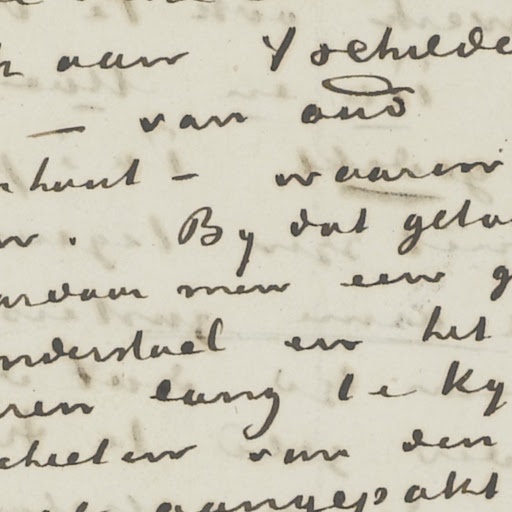 aan 't schilde
— van oud
hout - waarin
. By dat geta
ardoor men een g
nderstoel en het
ren lang te ky
chieten van den
aangepakt